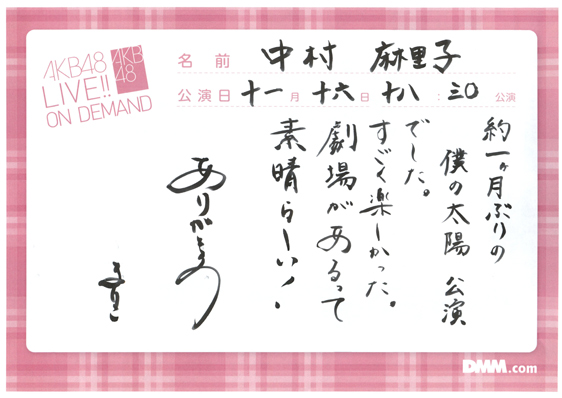 AKB48
LIVE!!
ON DEMAND
AKB
48
名前 中村 麻里子
公演日 十一月 十六日 十八:三〇 公演
約一ヶ月ぶりの
僕の太陽 公演
でした。
すごく楽しかった。
劇場があるって
素晴らしい!
ありがとう
まりこ
DMM.com